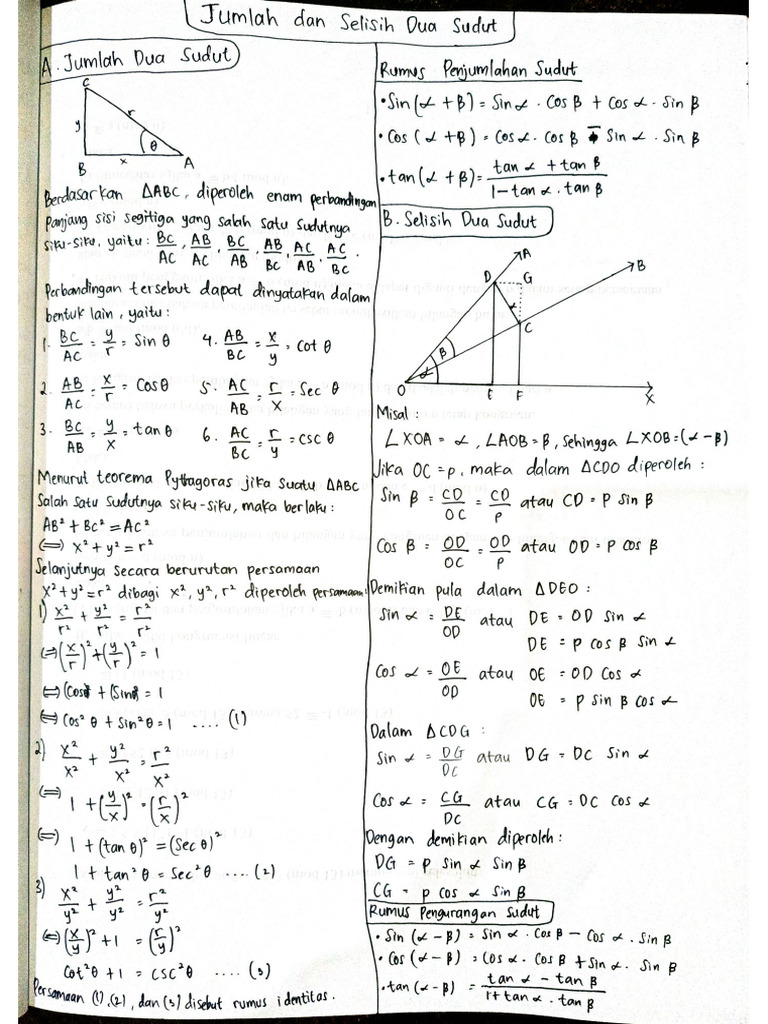 Jumlah dan Selisih Dua Sudut
A. Jumlah Dua Sudut
C
y
r
θ
B
x
A
Berdasarkan ΔABC, diperoleh enam perbandingan
Panjang sisi segitiga yang salah satu sudutnya
siku-siku, yaitu: BC/AC, AB/AC, BC/AB, AB/BC, AC/AB, AC/BC.
Perbandingan tersebut dapat dinyatakan dalam
bentuk lain, yaitu:
1. BC/AC = y/r = Sin θ 4. AB/BC = x/y = cot θ
2. AB/AC = x/r = Cosθ 5. AC/AB = r/x = Sec θ
3. BC/AB = y/x = tan θ 6. AC/BC = r/y = csc θ
Menurut teorema Pythagoras jika suatu ΔABC
Salah satu sudutnya siku-siku, maka berlaku:
AB² + BC² = AC²
(=) x² + y² = r²
Selanjutnya secara berurutan persamaan
x² + y² = r² dibagi x², y², r² diperoleh persamaan:
1) x²/r² + y²/r² = r²/r²
(=) (x/r)² + (y/r)² = 1
(=) (Cosθ)² + (Sinθ)² = 1
(=) Cos² θ + Sin² θ = 1 .... (1)
2) x²/x² + y²/x² = r²/x²
(=) 1 + (y/x)² = (r/x)²
(=) 1 + (tan θ)² = (Sec θ)²
1 + tan² θ = Sec² θ .... (2)
3) x²/y² + y²/y² = r²/y²
(=) (x/y)² + 1 = (r/y)²
Cot² θ + 1 = CSC² θ .... (3)
Persamaan (1), (2), dan (3) disebut rumus identitas.
Rumus Penjumlahan Sudut
• Sin (α + β) = Sin α . Cos β + Cos α . Sin β
• Cos (α + β) = Cos α . Cos β - Sin α . Sin β
• tan (α + β) = tan α + tan β / 1 - tan α . tan β
B. Selisih Dua Sudut
A
D
G
B
α
C
β
α
O
E
F
X
Misal:
∠XOA = α, ∠AOB = β, sehingga ∠XOB = (α - β)
Jika OC = p, maka dalam ΔCDO diperoleh:
Sin β = CD/OC = CD/P atau CD = P sin β
Cos β = OD/OC = OD/P atau OD = P cos β
Demikian pula dalam ΔDEO:
Sin α = DE/OD atau DE = OD Sin α
DE = p cos β Sin α
Cos α = OE/OD atau OE = OD Cos α
OE = p sin β cos α
Dalam ΔCDG:
Sin α = DG/DC atau DG = DC Sin α
Cos α = CG/DC atau CG = DC Cos α
Dengan demikian diperoleh:
DG = p Sin α Sin β
CG = p cos α Sin β
Rumus Pengurangan Sudut
• Sin (α - β) = Sin α . Cos β - Cos α . Sin β
• Cos (α - β) = Cos α . Cos β + Sin α . Sin β
• tan (α - β) = tan α - tan β / 1 + tan α . tan β